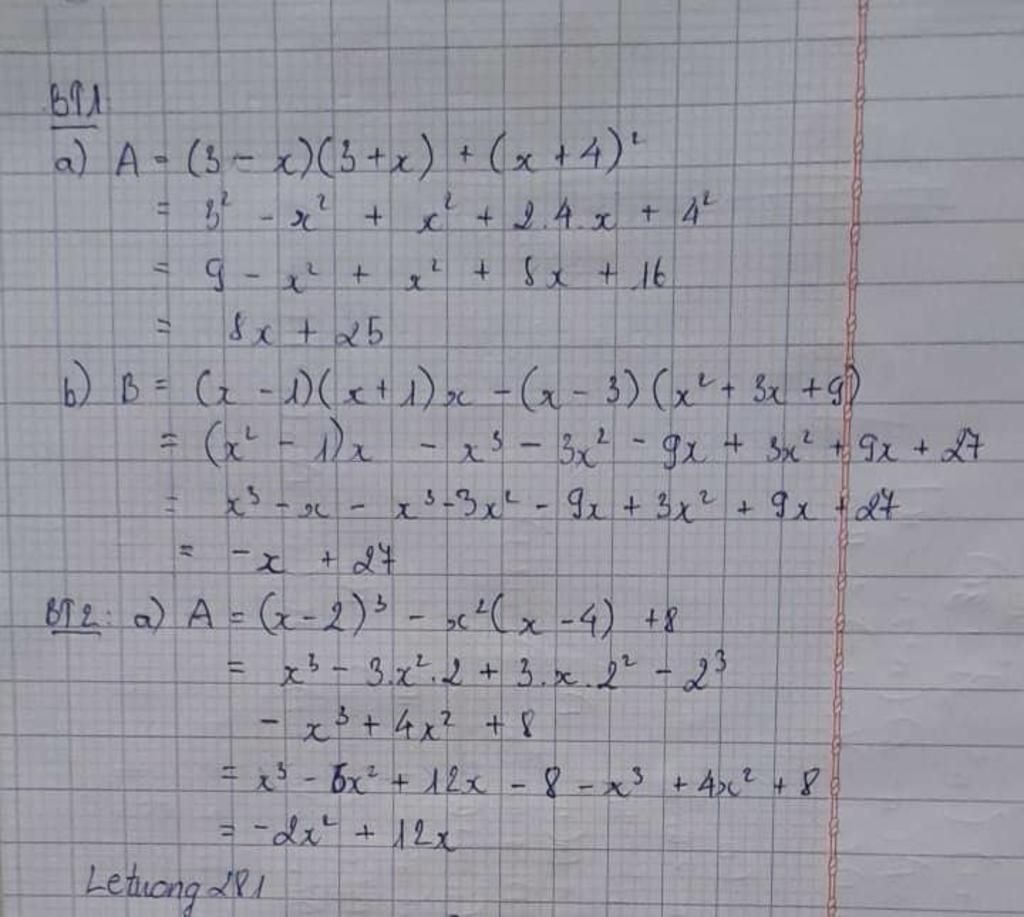 BT1
a) A = (3 - x)(3 + x) + (x + 4)²
= 3² - x² + x² + 2.4.x + 4²
= 9 - x² + x² + 8x + 16
= 8x + 25
b) B = (x - 1)(x + 1)x - (x - 3)(x² + 3x + 9)
= (x² - 1)x - x³ - 3x² - 9x + 3x² + 9x + 27
= x³ - x - x³ - 3x² - 9x + 3x² + 9x + 27
= -x + 27
BT2: a) A = (x - 2)³ - x²(x - 4) + 8
= x³ - 3.x².2 + 3.x.2² - 2³
- x³ + 4x² + 8
= x³ - 6x² + 12x - 8 - x³ + 4x² + 8
= -2x² + 12x
Letuong281